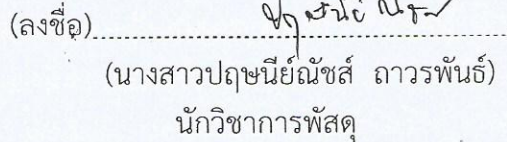 (ลงชื่อ)........................................................
(นางสาวปฤษนีย์ณัชส์ ถาวรพันธ์)
นักวิชาการพัสดุ